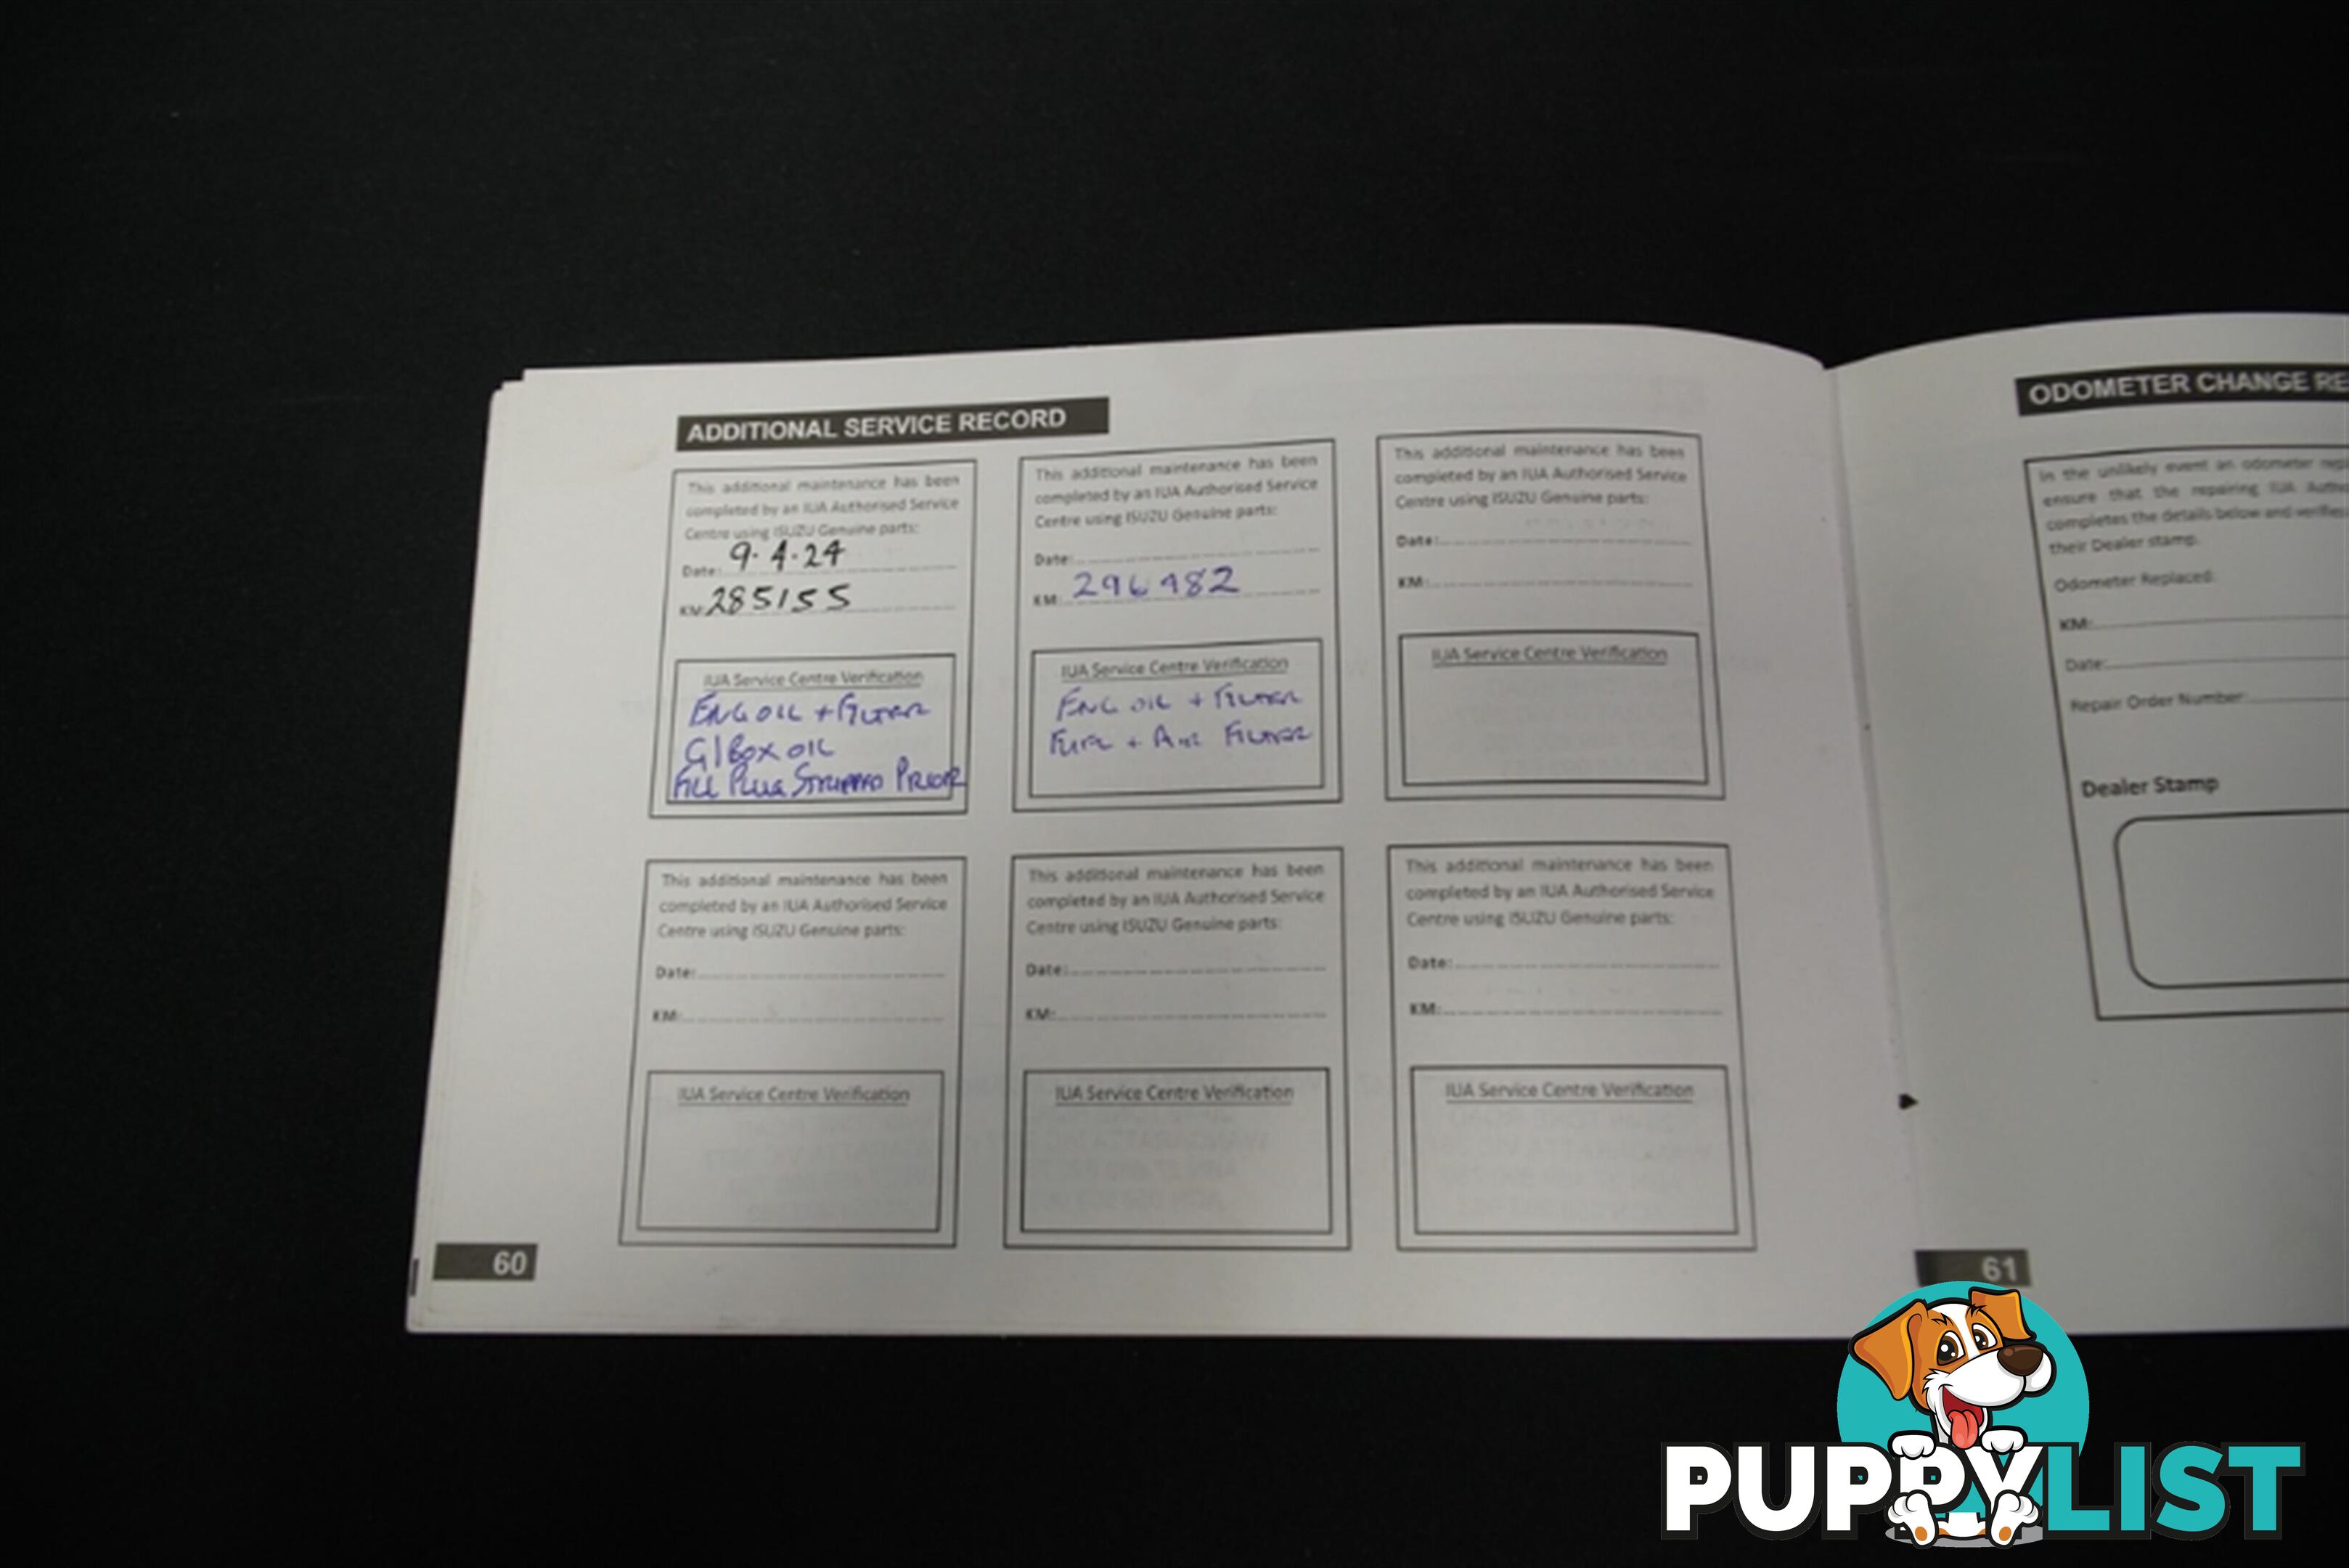 ADDITIONAL SERVICE RECORD
This additional maintenance has been
completed by an IUA Authorised Service
Centre using ISUZU Genuine parts:
Date: 9.4.24
KM: 285155
IUA Service Centre Verification
ENG OIL + FILTER
G/BOX OIL
FILL PLUG STRIPPED PRIOR
This additional maintenance has been
completed by an IUA Authorised Service
Centre using ISUZU Genuine parts:
Date:
KM: 296482
IUA Service Centre Verification
ENG OIL + FILTER
FUEL + AIR FILTER
This additional maintenance has been
completed by an IUA Authorised Service
Centre using ISUZU Genuine parts:
Date:
KM:
IUA Service Centre Verification
This additional maintenance has been
completed by an IUA Authorised Service
Centre using ISUZU Genuine parts:
Date:
KM:
IUA Service Centre Verification
This additional maintenance has been
completed by an IUA Authorised Service
Centre using ISUZU Genuine parts:
Date:
KM:
IUA Service Centre Verification
This additional maintenance has been
completed by an IUA Authorised Service
Centre using ISUZU Genuine parts:
Date:
KM:
IUA Service Centre Verification
60
ODOMETER CHANGE RE
In the unlikely event an odometer rep
ensure that the repairing IUA Autho
completes the details below and verifies
their Dealer stamp.
Odometer Replaced:
KM:
Date:
Repair Order Number:
Dealer Stamp
61
PUPPYLIST